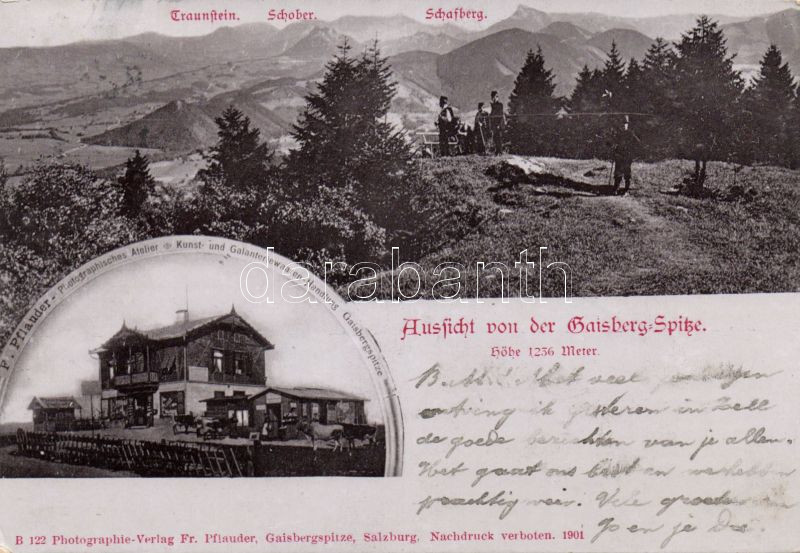 Traunstein. Schober. Schafberg.
F. Pflauder - Photographisches Atelier Kunst- und Galanteriewaaren Handlung Gaisbergspitze
darabanth.com
Aussicht von der Gaisberg-Spitze.
Höhe 1236 Meter.
Met veel
ontving ik gisteren in Zell
de goede berichten van je allen.
Het gaat ons best en we hebben
prachtig weer. Vele groeten
en je
B 122 Photographie-Verlag Fr. Pflauder, Gaisbergspitze, Salzburg. Nachdruck verboten. 1901